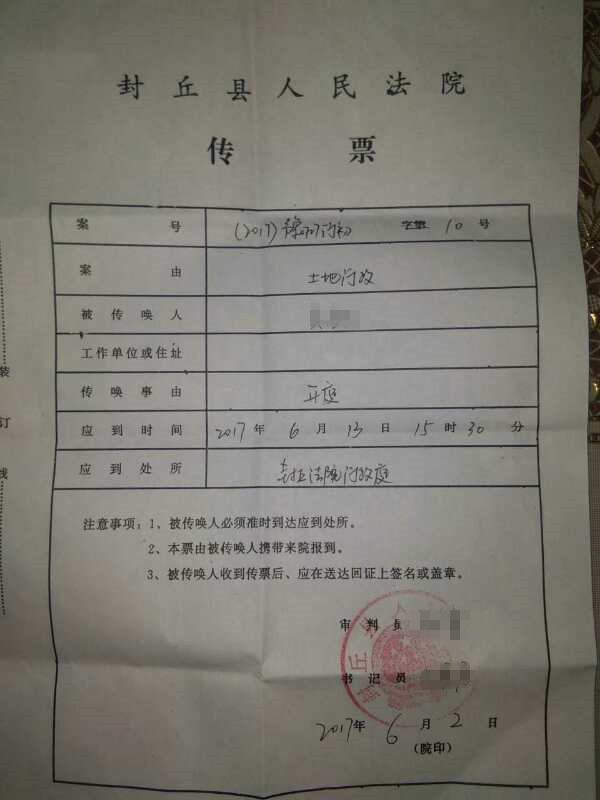 封丘县人民法院
传票
案号 (2017)豫0727行初 字第10号
案由 土地行政
被传唤人
工作单位或住址
传唤事由 开庭
应到时间 2017年6月13日15时30分
应到处所 封丘法院行政庭
注意事项:1、被传唤人必须准时到达应到处所。
2、本票由被传唤人携带来院报到。
3、被传唤人收到传票后、应在送达回证上签名或盖章。
审判员
书记员
2017年6月2日
(院印)
装
订
线